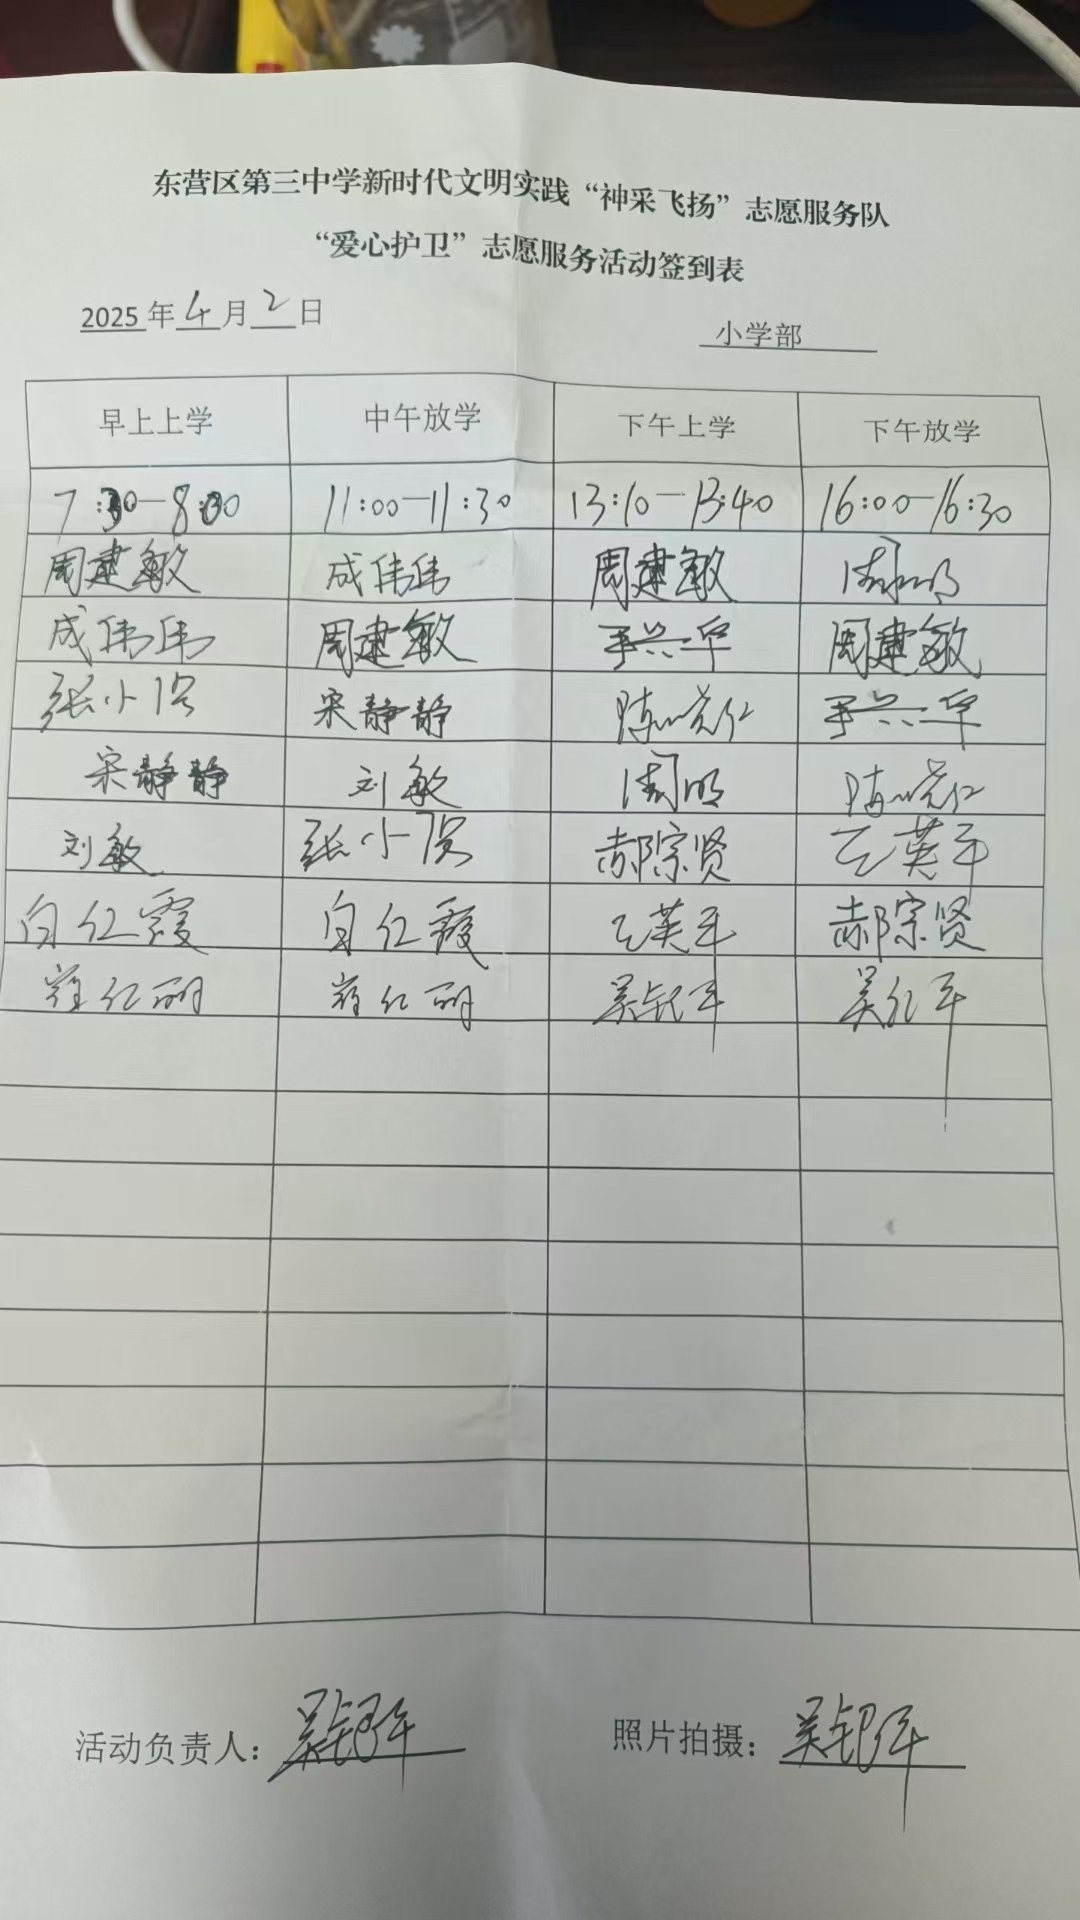 东营区第三中学新时代文明实践“神采飞扬”志愿服务队
“爱心护卫”志愿服务活动签到表
2025年4月2日
小学部
早上上学 中午放学 下午上学 下午放学
7:30-8:00 11:00-11:30 13:10-13:40 16:00-16:30
周建敏 成伟伟 周建敏
成伟伟 周建敏 周建敏
张小 宋静静 陈晓红
宋静静 刘敏 周明 陈晓红
刘敏 张小 郝宗贤 王英平
白红霞 白红霞 王英平 郝宗贤
崔红丽 崔红丽 吴银军 吴银军
活动负责人：吴银军
照片拍摄：吴银军